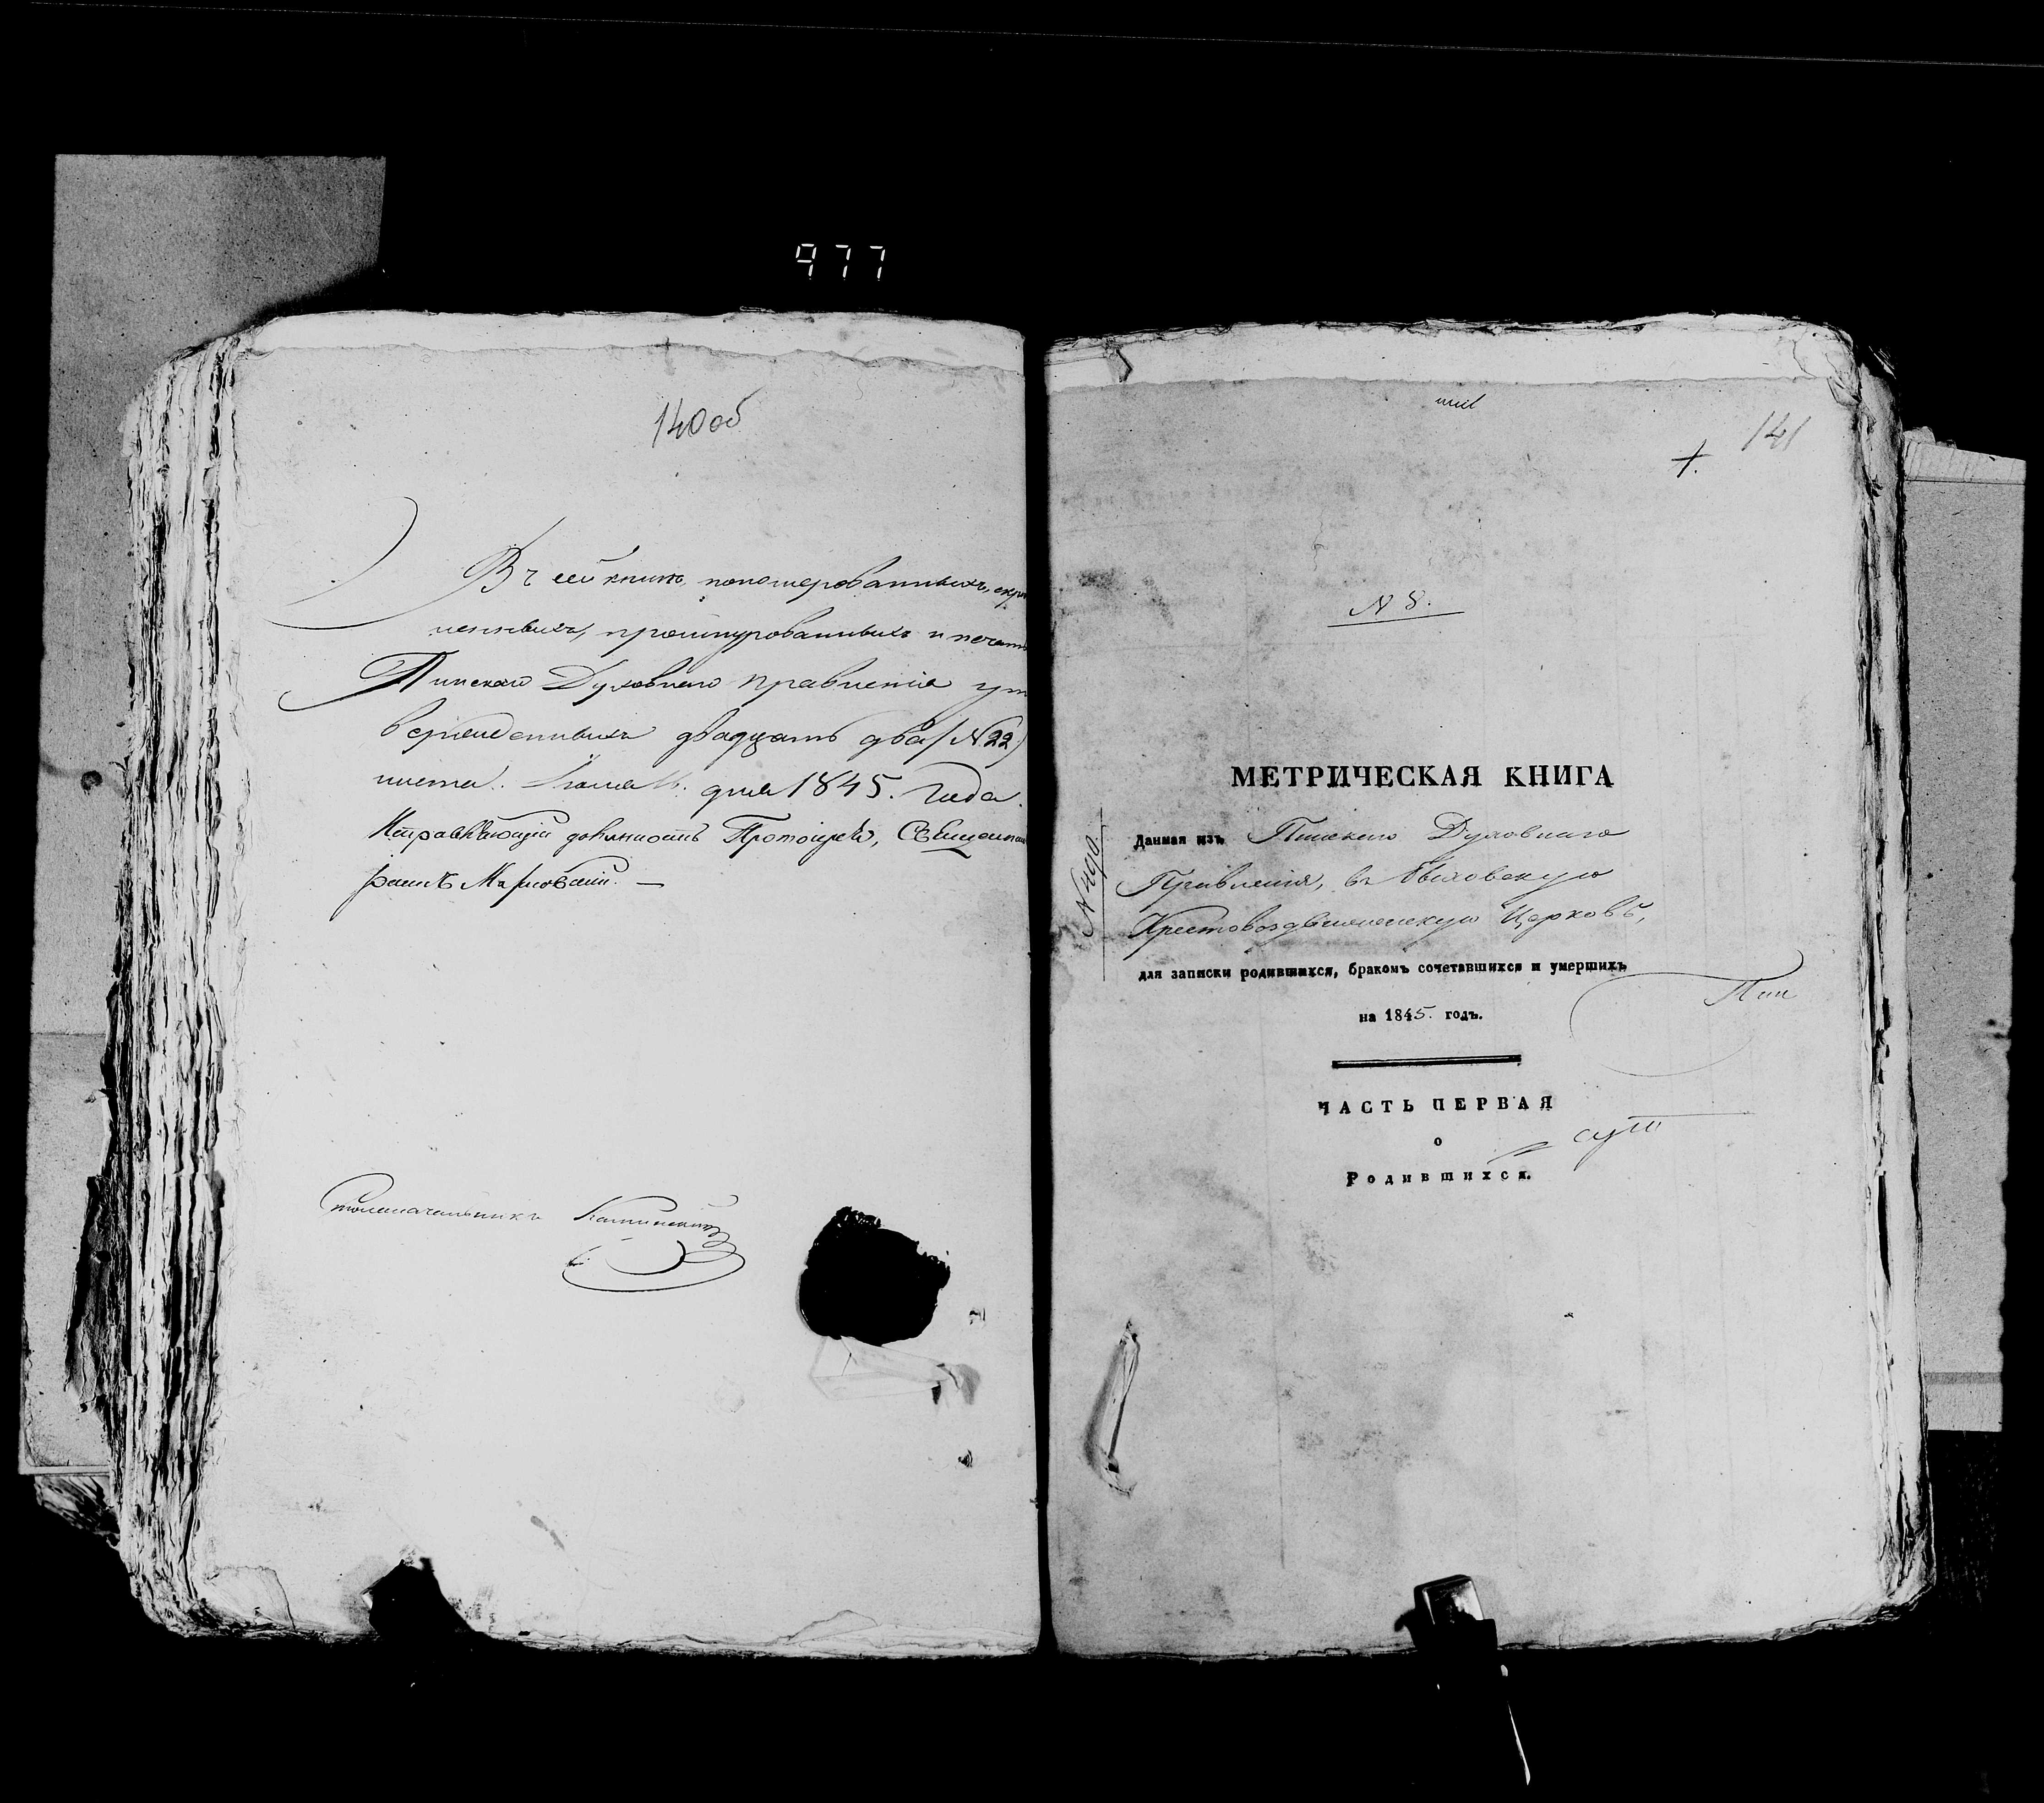 977
140 об
Въ сей книгѣ, пономерованныхъ, скрѣ
пленныхъ, прошнурованныхъ и печатью
Пинскаго Духовнаго Правленія ут
вержденныхъ двадцать два / N 22 /
листа. дня 1845. Года.
Исправляющій должность Протоіерея, Священникъ
Столоначальникъ
141
1.
N 8.
МЕТРИЧЕСКАЯ КНИГА
N 490.
Данная изъ Пинскаго Духовнаго
Правленія, въ
Крестовоздвиженскую Церковь,
для записки родившихся, бракомъ сочетавшихся и умершихъ
на 1845. годъ.
Пин
ЧАСТЬ ПЕРВАЯ
о
Родившихся.